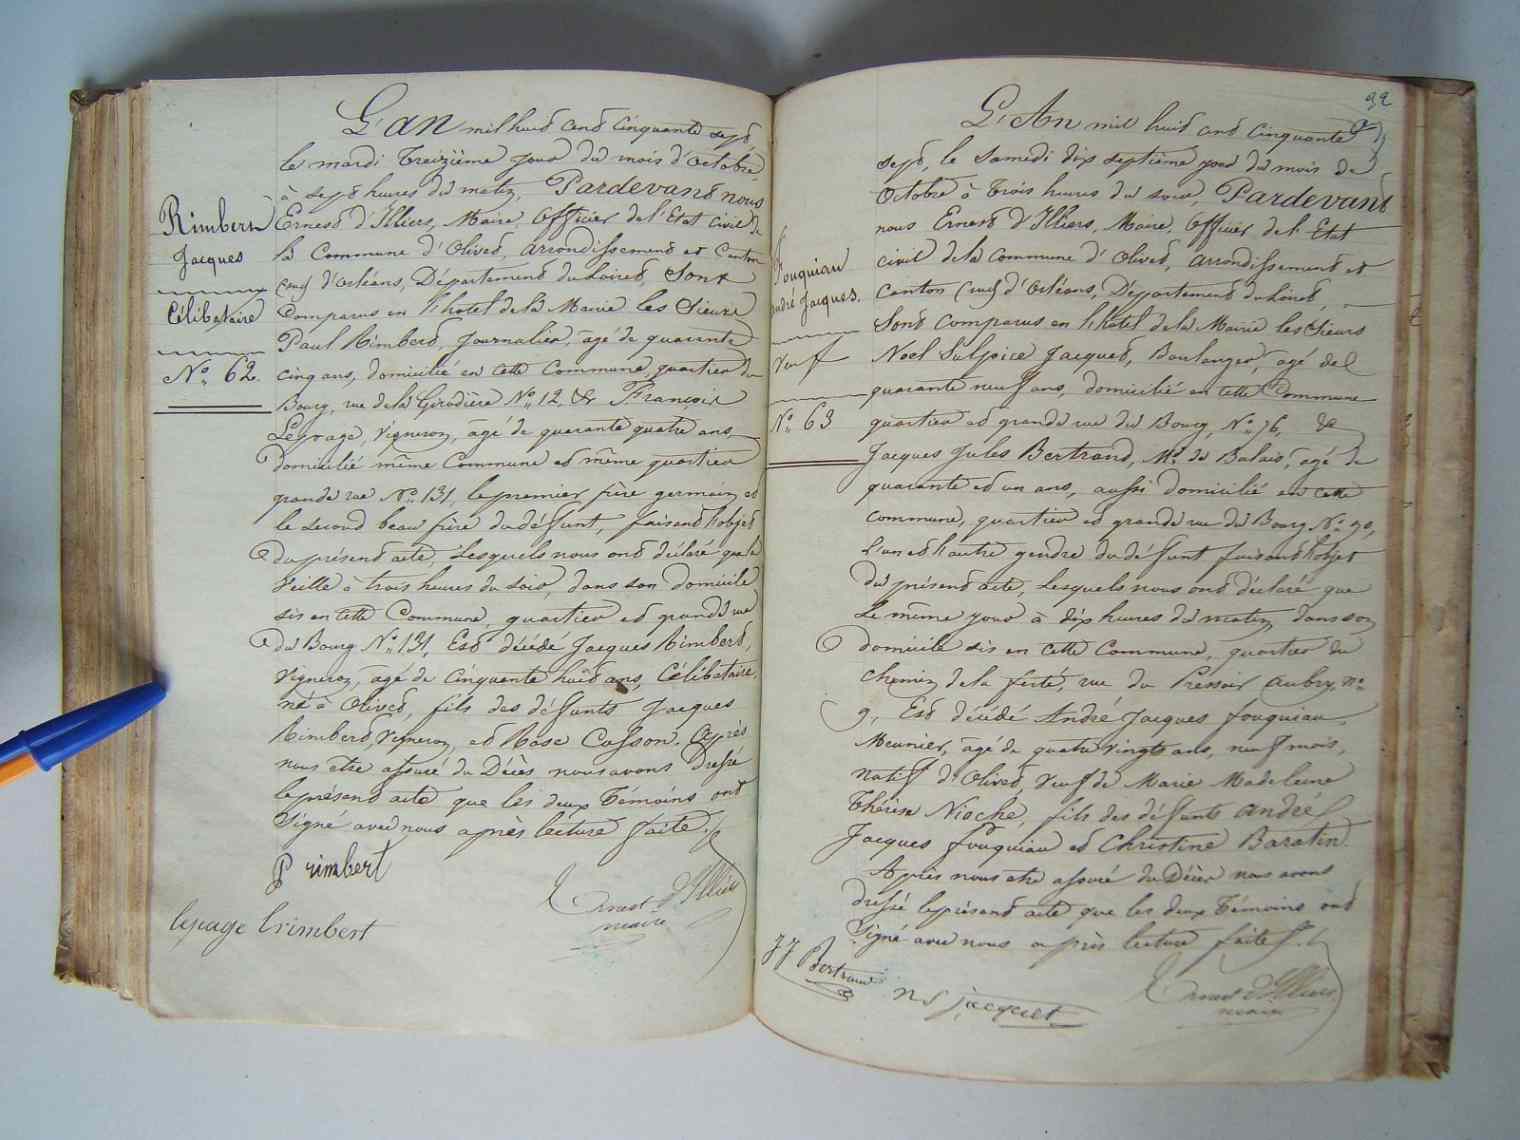 Rimbert
Jacques
Célibataire
N° 62.
L'an mil huit cent cinquante sept
le mardi treizième jour du mois d'octobre
à sept heures du matin, Pardevant nous
Ernest d'Illiers, Maire, Officier de l'Etat civil de
la Commune d'Olivet, arrondissement et Canton
sud d'Orléans, Département du Loiret, Sont
Comparus en l'hôtel de la Mairie les Sieurs
Paul Rimbert, Journalier, âgé de quarante
cinq ans, domicilié en cette Commune, quartier du
Bourg, rue de la N° 12, & François
Lepage, Vigneron, âgé de quarante quatre ans,
domicilié même Commune et même quartier
grande rue N° 131, le premier frère germain et
le second beau frère du défunt, faisant l'objet
du présent acte, Lesquels nous ont déclaré que la
veille à trois heures du soir, dans son domicile
sis en cette Commune, quartier et grande rue
du Bourg N° 131, Est décédé Jacques Rimbert,
Vigneron, âgé de Cinquante huit ans, Célibataire,
né à Olivet, fils des défunts Jacques
Rimbert, Vigneron, et Rose Casson. Après
nous etre assuré du Décès nous avons dressé
le présent acte que les deux témoins ont
Signé avec nous après lecture faite./.
P rimbert
Ernest d'Illiers
maire
lepage lrimbert
92
Fouquiau
André Jacques.
Veuf
N° 63
L'An mil huit cent Cinquante
sept, le Samedi dix septième jour du mois de
Octobre à trois heures du soir, Pardevant
nous Ernest d'Illiers, Maire, Officier de l'Etat
civil de la Commune d'Olivet, arrondissement et
Canton sud d'Orléans, Département du Loiret,
Sont Comparus en l'hôtel de la Mairie les Sieurs
Noel Sulpice Jacquet, Boulanger, âgé de
quarante neuf ans, domicilié en cette Commune
quartier et grande rue du Bourg, N° 76, &
Jacques Jules Bertrand, Md de Balais, âgé de
quarante et un ans, aussi domicilié en cette
commune, quartier et grande rue du Bourg N° 90,
L'un et l'autre gendre du défunt faisant l'objet
du présent acte, Lesquels nous ont déclaré que
Le même jour à dix heures du matin dans son
domicile sis en cette Commune, quartier du
chemin de la ferté, rue du Pressoir Aubry, n°
9, Est décédé André Jacques fouquiau
Meunier, âgé de quatre vingts ans, neuf mois,
natif d'Olivet, Veuf de Marie Madeleine
Thérèse Nioche, fils des défunts André
Jacques fouquiau et Christine Baratin.
Après nous etre assuré du Décès nous avons
dressé le présent acte que les deux Témoins ont
Signé avec nous après lecture faite./.
JJ Bertrand
ns jacquet
Ernest d'Illiers
maire